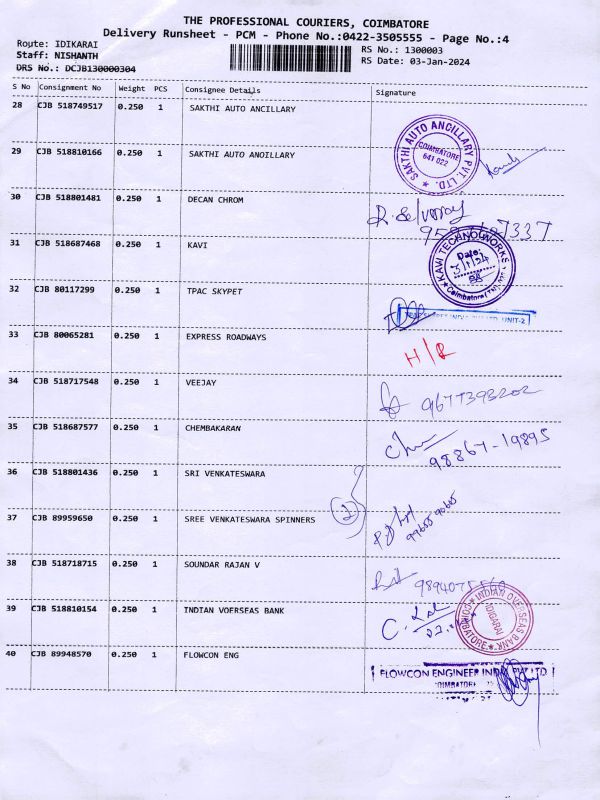 THE PROFESSIONAL COURIERS, COIMBATORE
Delivery Runsheet - PCM - Phone No.:0422-3505555 - Page No.:4
Route: IDIKARAI
RS No.: 1300003
Staff: NISHANTH
RS Date: 03-Jan-2024
DRS No.: DCJB130000304
S No Consignment No Weight PCS Consignee Details Signature
28 CJB 518749517 0.250 1 SAKTHI AUTO ANCILLARY
SAKTHI AUTO ANCILLARY PVT. LTD.
COIMBATORE
641 022
29 CJB 518810166 0.250 1 SAKTHI AUTO ANOILLARY
30 CJB 518801481 0.250 1 DECAN CHROM
31 CJB 518687468 0.250 1 KAVI
KAVI TECHNOLWORKS
Date:
3/1/24
32 CJB 80117299 0.250 1 TPAC SKYPET
UNIT-2
33 CJB 80065281 0.250 1 EXPRESS ROADWAYS
H/R
34 CJB 518717548 0.250 1 VEEJAY
9677393202
35 CJB 518687577 0.250 1 CHEMBAKARAN
98867-19895
36 CJB 518801436 0.250 1 SRI VENKATESWARA
2
37 CJB 89959650 0.250 1 SREE VENKATESWARA SPINNERS
38 CJB 518718715 0.250 1 SOUNDAR RAJAN V
39 CJB 518810154 0.250 1 INDIAN VOERSEAS BANK
INDIAN OVERSEAS BANK
IDIGARAI
COIMBATORE
40 CJB 89948570 0.250 1 FLOWCON ENG
FLOWCON ENGINEER INDIA PVT LTD
COIMBATORE